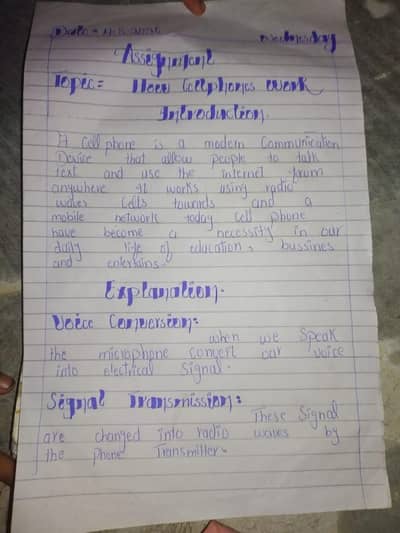 Date =
Wednesday
Assignmant
Topic= How Cellphones work
Introduction.
A Cell phone is a modern Communication
Device that allow people to talk
text and use the internet frum
anywhere It works using radio
waves Cells towards and a
mobile network today Cell phone
have become a necessity in our
daily life of education, bussines
and entertains.
Explanation.
Voice Conversion:
when we Speak
the microphone convert our voice
into electrical Signal.
Signal Transmission:
These Signal
are changed into radio waves by
the phone Transmitter.